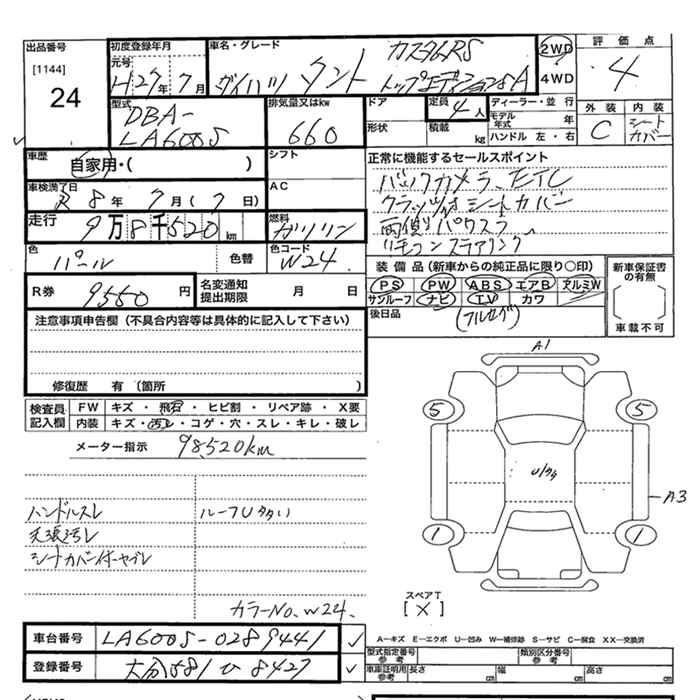 出品番号
[1144]
24
初度登録年月
元号
H27年7月
車名・グレード
カスタムRS
ダイハツ タント トップエディションSA
2WD
4WD
評価点
4
外装 内装
C シートカバー
型式
DBA-
LA600S
排気量又はkw
660
ドア
形状
定員
4人
積載 kg
ディーラー・並行
モデル年式 年
ハンドル 左・右
車歴
自家用・( )
シフト
AC
車検満了日
R8年7月(7日)
走行
9万8千520km
燃料
ガソリン
色
パール
色替
色コード
W24.
R券
9550円
名変通知
提出期限
月 日
正常に機能するセールスポイント
バックカメラ、ETC
クラッツィオシートカバー
両側パワスラ
リモコン ステアリング
装備品(新車からの純正品に限り○印)
PS PW ABS エアB アルミW
サンルーフ ナビ TV カワ
後日品
(フルセグ)
新車保証書の有無
車載不可
注意事項申告欄(不具合内容等は具体的に記入して下さい)
修復歴 有(箇所 )
検査員記入欄
FW キズ・飛石・ヒビ割・リペア跡・X要
内装 キズ・汚レ・コゲ・穴・スレ・キレ・破レ
メーター指示 98,520km
ハンドルスレ
天張汚レ
シートカバー付
ルーフU多い
カラーNo. W24.
A1
5 5
U小々
A3
1 1
スペアT
[X]
A-キズ E-エクボ U-凹み W-補修跡 S-サビ C-腐食 XX-交換済
車台番号 LA600S-0289441
登録番号 大分581 ひ 8427
型式指定番号
参考
類別区分番号
参考
車庫証明用
参考
長さ cm 幅 cm 高さ cm